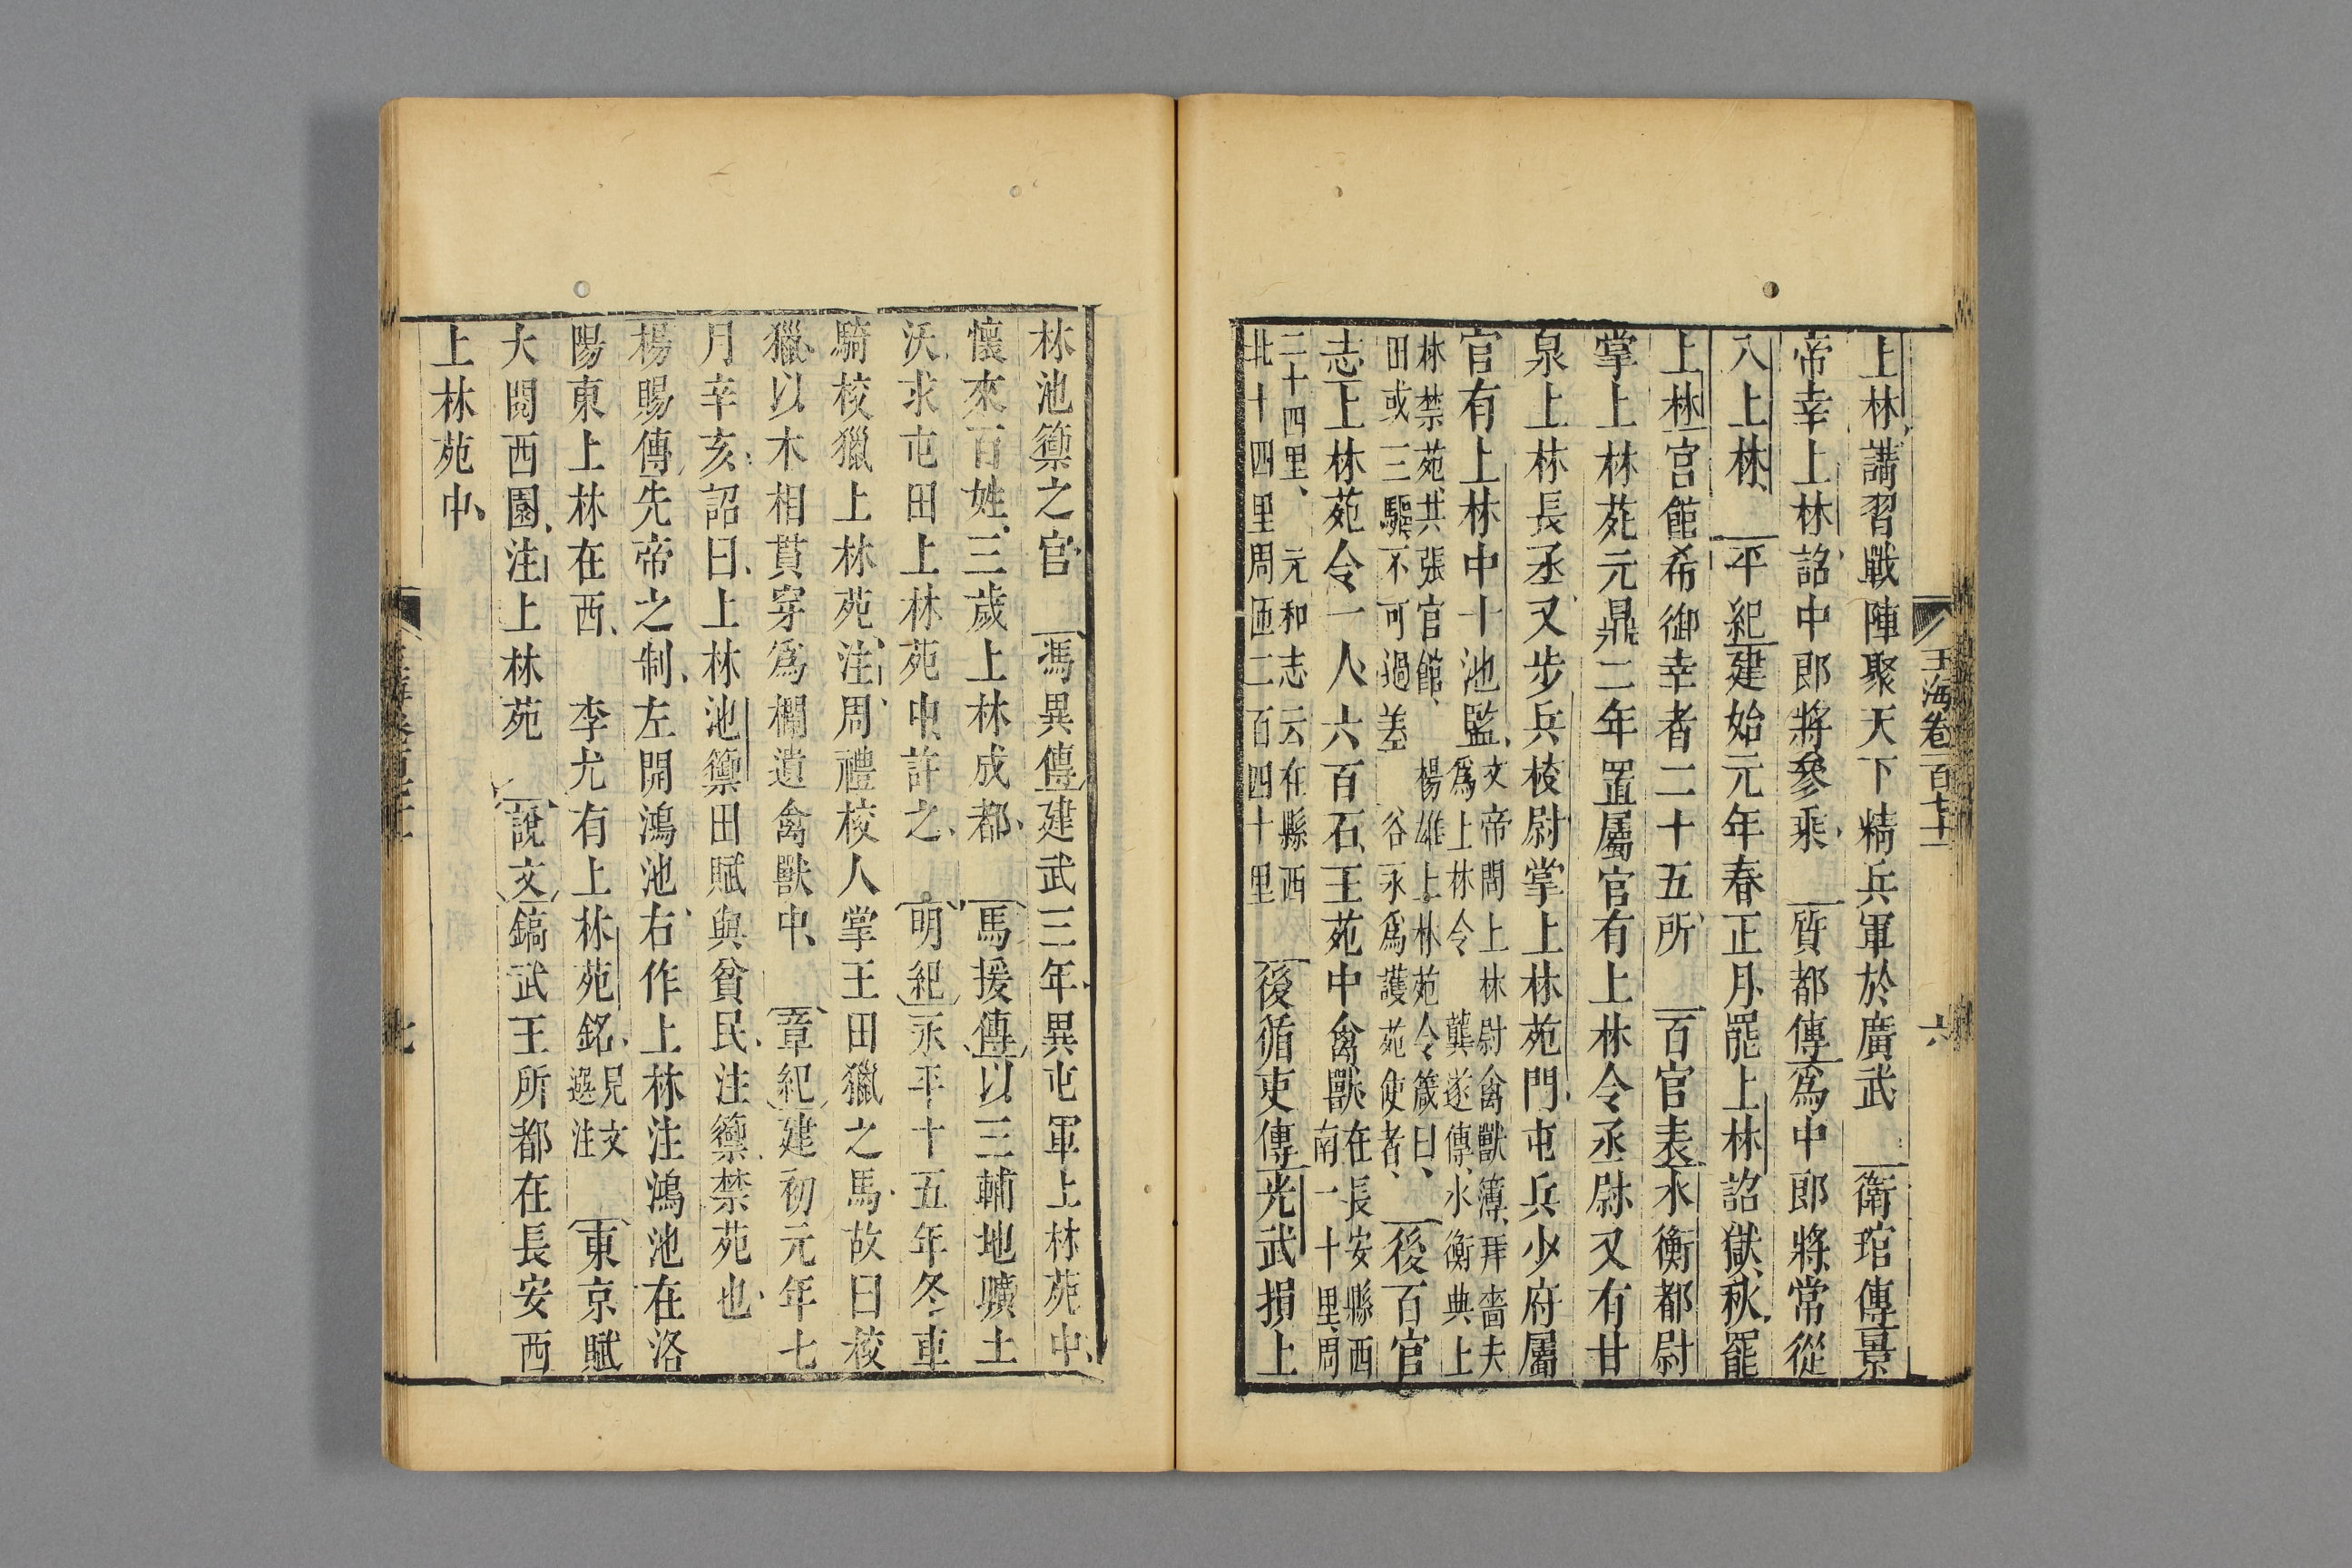 玉海卷一百七十一
六
上林講習戰陣聚天下精兵軍於廣武　衛琯傳景
帝幸上林詔中郎將參乘　質都傳爲中郎將常從
入上林　平紀建始元年春正月罷上林詔獄秋罷
上林宮館希御幸者二十五所　百官表水衡都尉
掌上林苑元鼎二年置屬官有上林令丞尉又有甘
泉上林長丞又步兵校尉掌上林苑門屯兵少府屬
官有上林中十池監文帝問上林尉禽獸簿拜嗇夫
爲上林令　龔遂傳水衡典上
林禁苑共張官館　楊雄上林苑令箴曰
田或三驅不可過差　谷永爲護苑使者　後百官
志上林苑令一人六百石主苑中禽獸在長安縣西
南一十里周
二十四里　元和志云在縣西
北十四里周匝二百四十里　後循吏傳光武損上
林池籞之官　馮異傳建武三年異屯軍上林苑中
懷來百姓三歲上林成都　馬援傳以三輔地曠土
沃求屯田上林苑中許之　明紀永平十五年冬車
騎校獵上林苑注周禮校人掌王田獵之馬故曰校
獵以木相貫穿爲欄遮禽獸中　章紀建初元年七
月辛亥詔曰上林池籞田賦與貧民注籞禁苑也
楊賜傳先帝之制左開鴻池右作上林注鴻池在洛
陽東上林在西　李尤有上林苑銘見文
選注　東京賦
大閱西園注上林苑　說文鎬武王所都在長安西
上林苑中
七